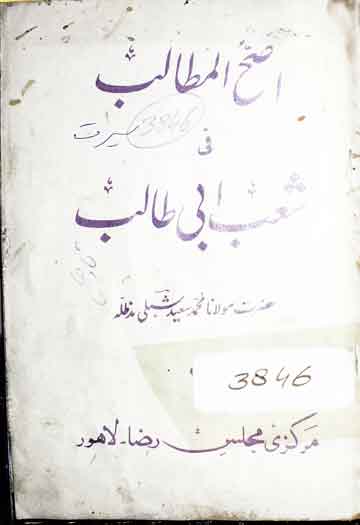 اصح المطالب
3846 سیرت
فی
شعب ابی طالب
حضرت مولانا محمد سعید شبلی مدظلہ
3846
مرکزی مجلس رضا۔لاہور